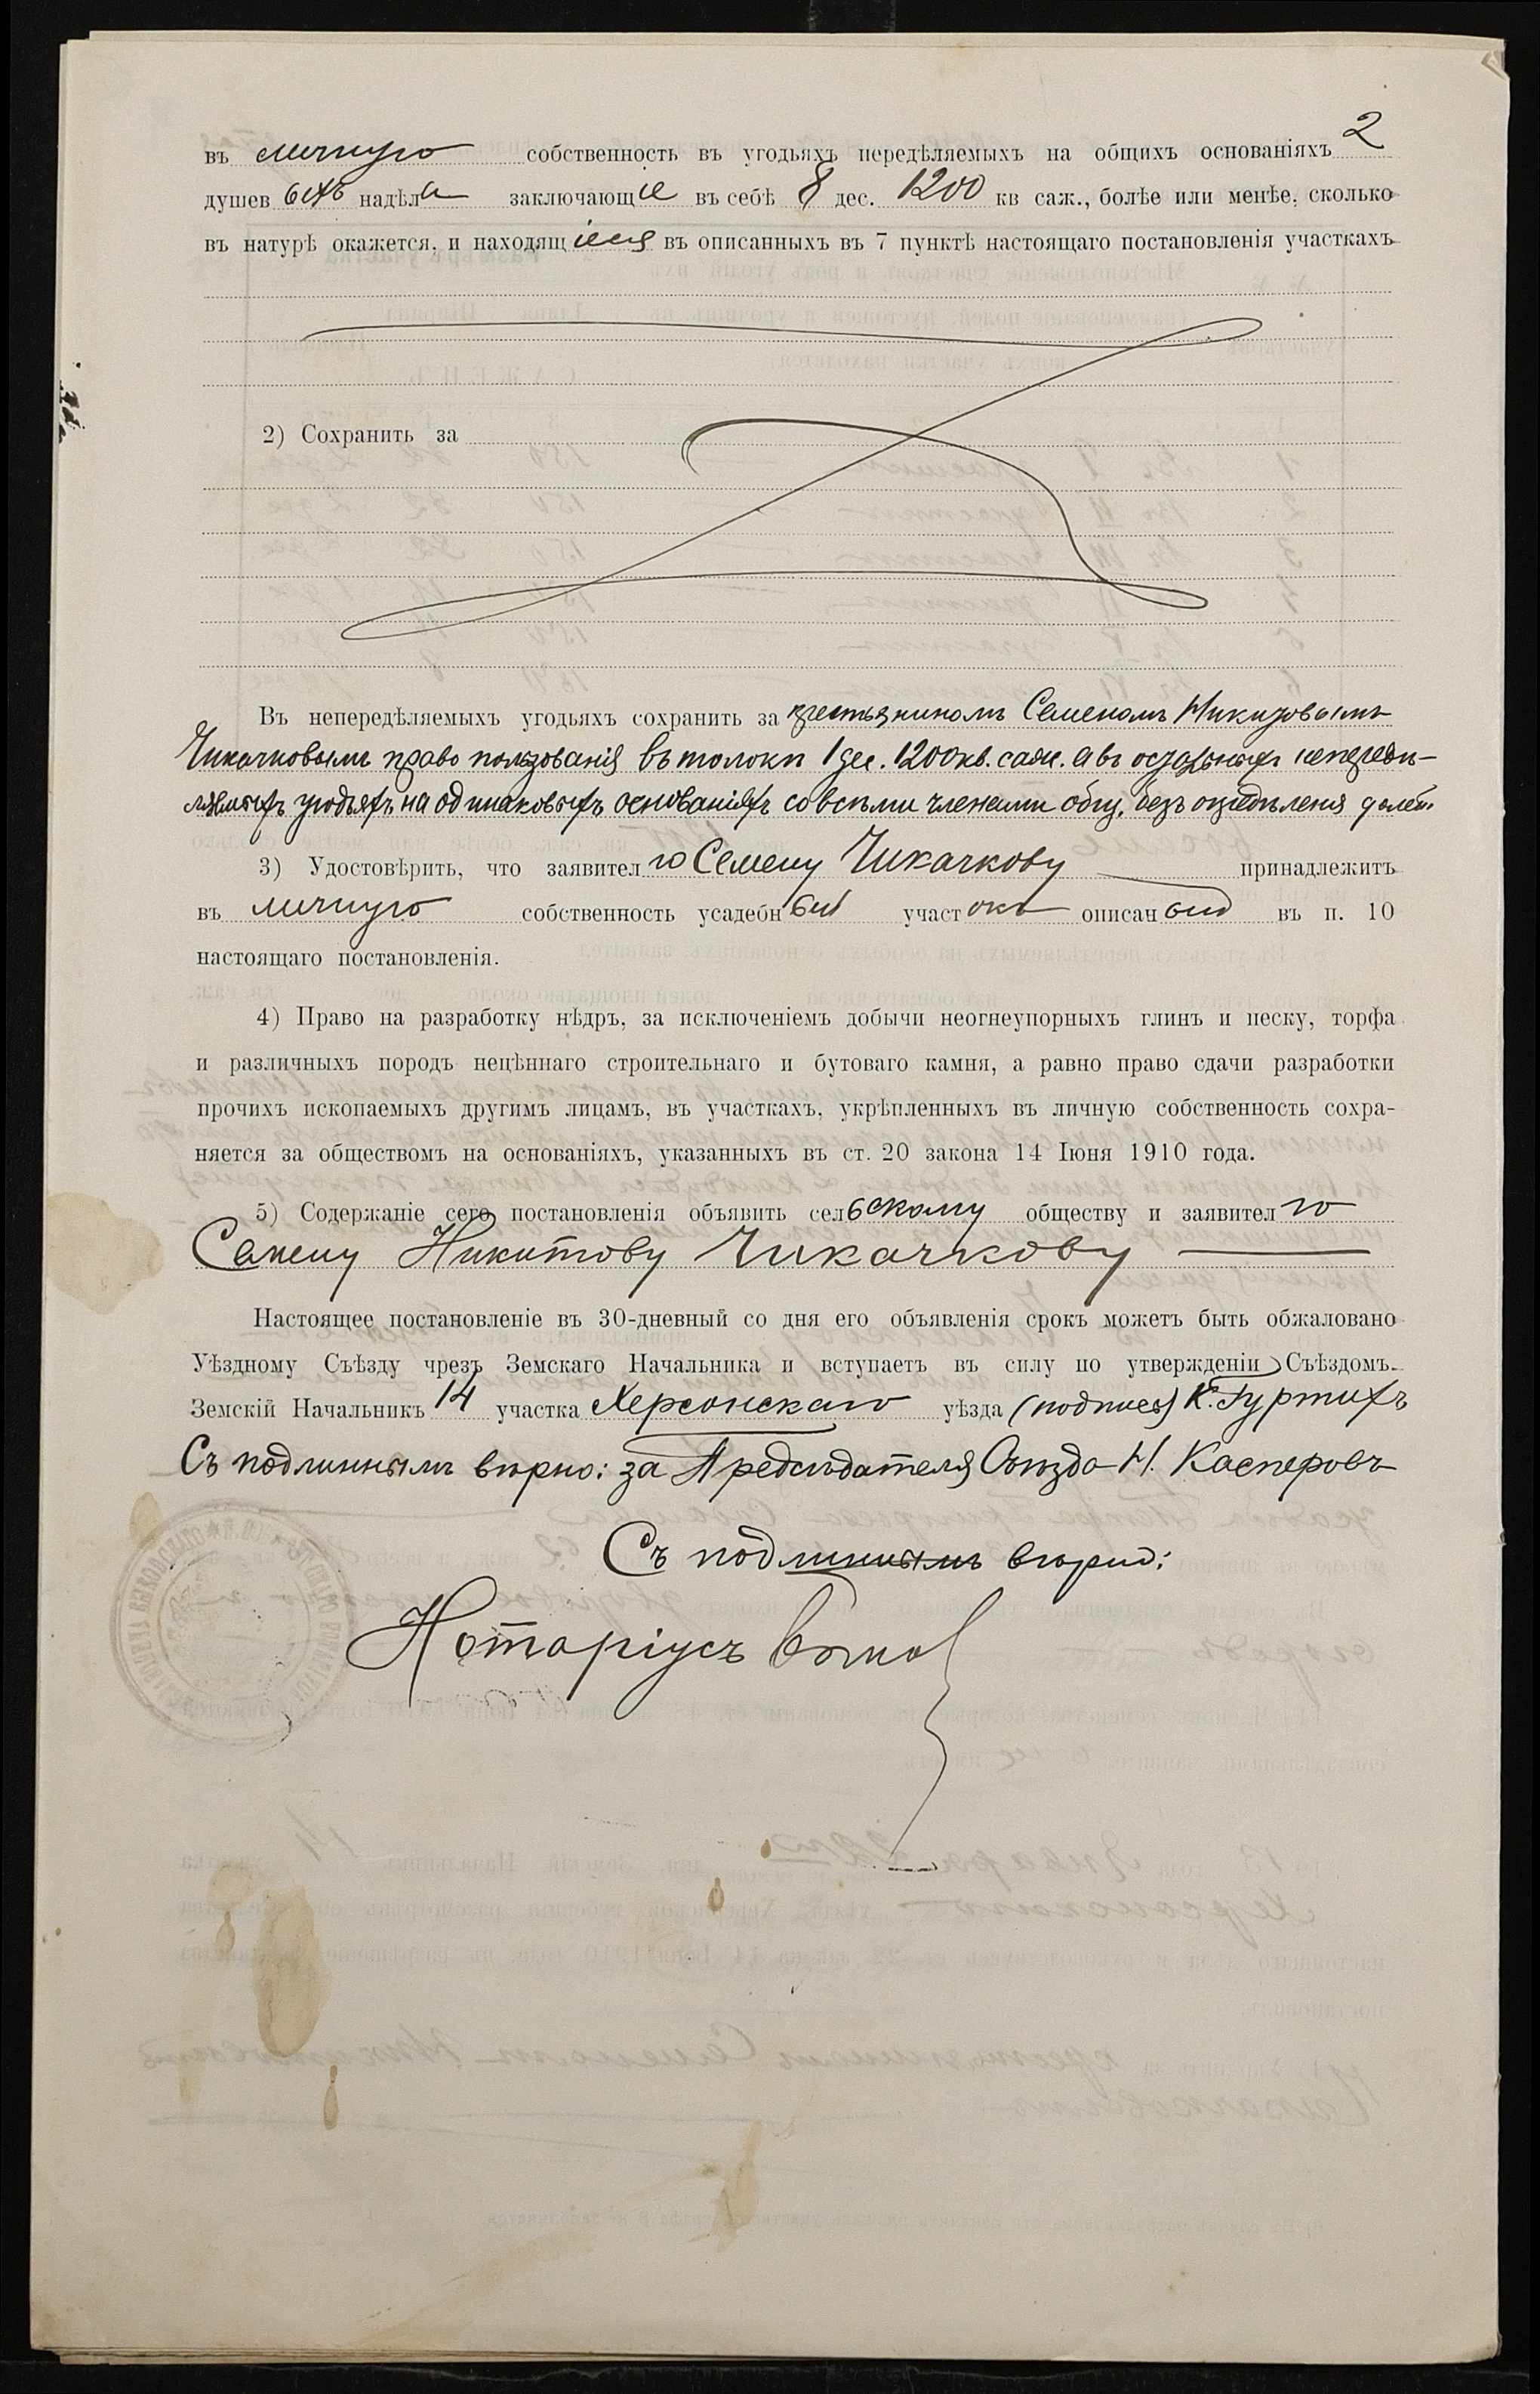 въ личную собственность въ угодьяхъ передѣляемыхъ на общихъ основаніяхъ 2
душевыхъ надѣла заключающіе въ себѣ 8 дес. 1200 кв саж., болѣе или менѣе, сколько
въ натурѣ окажется, и находящіеся въ описанныхъ въ 7 пунктѣ настоящаго постановленія участкахъ
2) Сохранить за
Въ непередѣляемыхъ угодьяхъ сохранить за крестьяниномъ Семеномъ Никитовымъ
Чикачковымъ право пользованія въ толокѣ 1 дес. 1200 кв. саж. а въ остальныхъ непередѣ-
ляемыхъ угодьяхъ на одинаковыхъ основаніяхъ со всѣми членами общ. безъ опредѣленія долей.
3) Удостовѣрить, что заявителю Семену Чикачкову принадлежитъ
въ личную собственность усадебный участокъ описанный въ п. 10
настоящаго постановленія.
4) Право на разработку нѣдръ, за исключеніемъ добычи неогнеупорныхъ глинъ и песку, торфа
и различныхъ породъ нецѣннаго строительнаго и бутоваго камня, а равно право сдачи разработки
прочихъ ископаемыхъ другимъ лицамъ, въ участкахъ, укрѣпленныхъ въ личную собственность сохра-
няется за обществомъ на основаніяхъ, указанныхъ въ ст. 20 закона 14 Іюня 1910 года.
5) Содержаніе сего постановленія объявить сельскому обществу и заявителю
Семену Никитову Чикачкову
Настоящее постановленіе въ 30-дневный со дня его объявленія срокъ можетъ быть обжаловано
Уѣздному Съѣзду чрезъ Земскаго Начальника и вступаетъ въ силу по утвержденіи Съѣздомъ.
Земскій Начальникъ 14 участка Херсонскаго уѣзда (подпись) К. Гуртихъ
Съ подлиннымъ вѣрно: за Предсѣдателя Съѣзда Н. Касперовъ
Съ подлиннымъ вѣрно:
Нотаріусъ